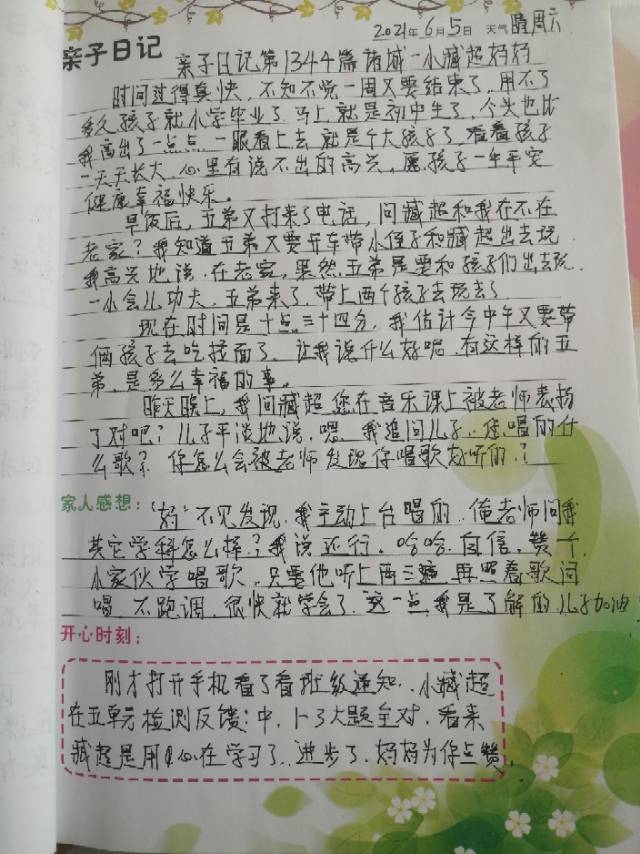 2021年6月5日 天气 晴周六
亲子日记
亲子日记第1344篇诸城一小臧超妈妈
时间过得真快,不知不觉一周又要结束了,用不了
多久孩子就小学毕业了.马上就是初中生了,个头也比
我高出了一点点,一眼看上去就是个大孩子了,看着孩子
一天天长大,心里有说不出的高兴,愿孩子一生平安
健康幸福快乐。
早饭后,五弟又打来了电话,问臧超和我在不在
老家?我知道五弟又要开车带小侄子和臧超出去玩
我高兴地说.在老家,果然,五弟是要和孩子们出去玩.
一小会儿功夫,五弟来了.带上两个孩子去玩去了.
现在时间是十点三十四分,我估计今中午又要带
俩孩子去吃拉面了.让我说什么好呢,有这样的五
弟,是多么幸福的事。
昨天晚上,我问臧超您在音乐课上被老师表扬
了对吧?儿子平淡地说,嗯.我追问儿子.你唱的什
么歌?你怎么会被老师发现你唱歌好听的?
家人感想:“妈”不见发现,我主动上台唱的..俺老师问我
其它学科怎么样?我说还行.哈哈.自信.赞一个.
小家伙学唱歌.只要他听上两三遍.再照着歌词
唱.不跑调.很快就学会了.这一点,我是了解的.儿子加油
开心时刻:
刚才打开手机看了看班级通知..小臧超
在五单元检测反馈:中.1-3大题全对.看来
臧超是用心在学习了.进步了.妈妈为你点赞.